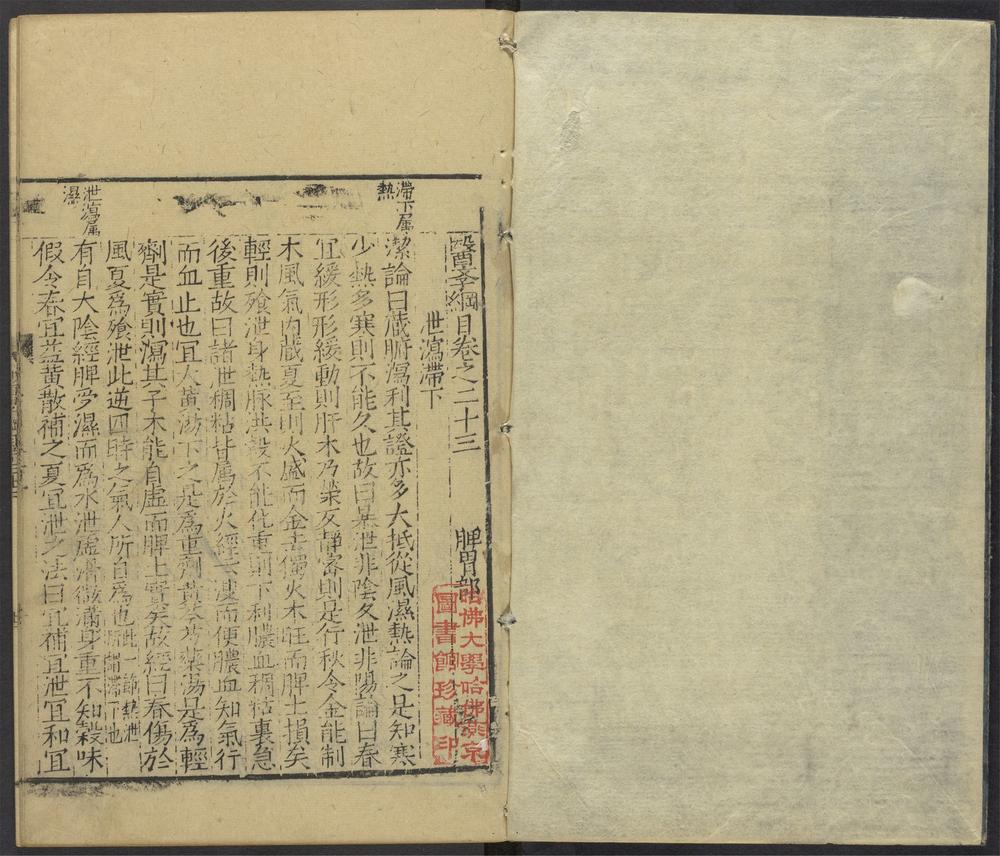 醫學綱目卷之二十三 脾胃部
泄瀉滯下
潔論曰藏腑瀉利其證亦多大抵從風濕熱論之是知寒
少熱多寒則不能久也故曰暴泄非陰久泄非陽論曰春
宜緩形形緩動則肝木乃榮反靜密則是行秋令金能制
木風氣內藏夏至則火盛而金去獨火木旺而脾土損矣
輕則飱泄身熱脉洪穀不能化重則下利膿血稠粘裏急
後重故曰諸泄稠粘皆屬於火經云溲而便膿血知氣行
而血止也宜大黃湯下之是爲重劑黃芩芍藥湯是爲輕
劑是實則瀉其子木能自虛而脾土實矣故經曰春傷於
風夏爲飱泄此逆四時之氣人所自爲也此一節熱泄
所謂滯下也
有自大陰經脾受濕而爲水泄虛滑微滿身重不知穀味
假令春宜益黃散補之夏宜泄之法曰宜補宜泄宜和宜
滯下屬
熱
泄瀉屬
濕
哈佛大學哈佛燕京
圖書館珍藏印